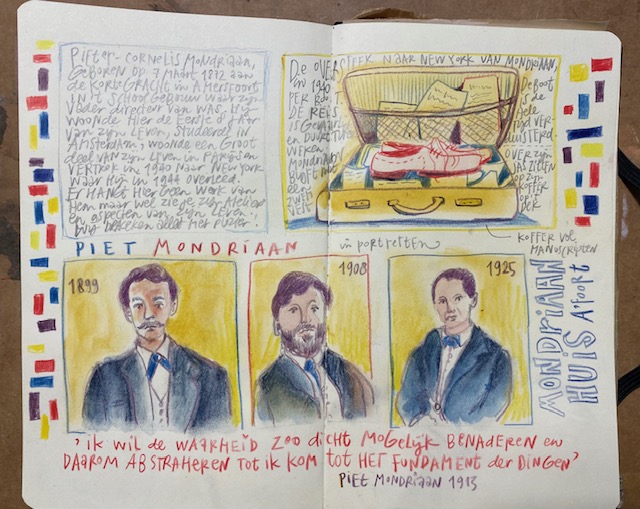 PIETER-CORNELIS MONDRIAAN,
GEBOREN OP 7 MAART 1872 AAN
de KORTEGRACHT in AMERSFOORT
IN 't SCHOOLGEBOUW WAAR ZIJN
VADER DIRECTEUR VAN WAS,
WOONDE HIER de EERSTE 8 JAAR
VAN ZIJN LEVEN, STUDEERDE in
AMSTERDAM, WOONDE EEN GROOT
deel VAN ZIJN LEVEN in PARIJS EN
VERTROK in 1940 NAAR NEW YORK
WAAR HIJ in 1944 OVERLEED.
ER HANGT HIER GEEN WERK VAN
hem maar wel zie je zijn Atelier
en ASPECTEN VAN ZIJN LEVEN.
DE OVERSTEEK NAAR NEW YORK VAN MONDRIAAN,
in 1940
PER BOOT
DE REIS
EN DUURT
WEKEN
MONDRIAAN
een
De Boot
is de
OVER ZIJN
KOFFER
OP
DER
KOFFER VOL
MANUSCRIPTEN
PIET MONDRIAAN in portretten
1899
1908
1925
MONDRIAAN
HUIS A'foort
'ik wil de WAARHEID ZOO dicht MOGELIJK BENADEREN en
DAAROM ABSTRAHEREN TOT iK KOM tot HET FUNDAMENT der DINGEN'
PIET MONDRIAAN 1913